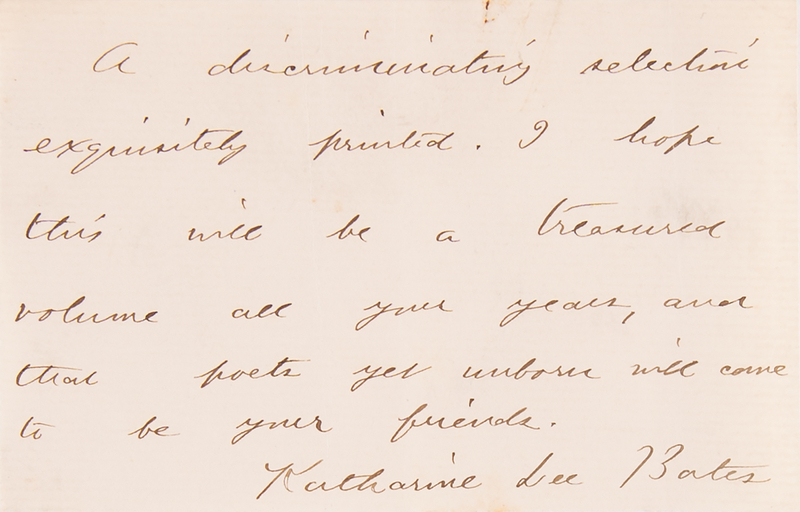 A discriminating selection
exquisitely printed. I hope
this will be a treasured
volume all your years, and
that poets yet unborn will come
to be your friends.
Katharine Lee Bates